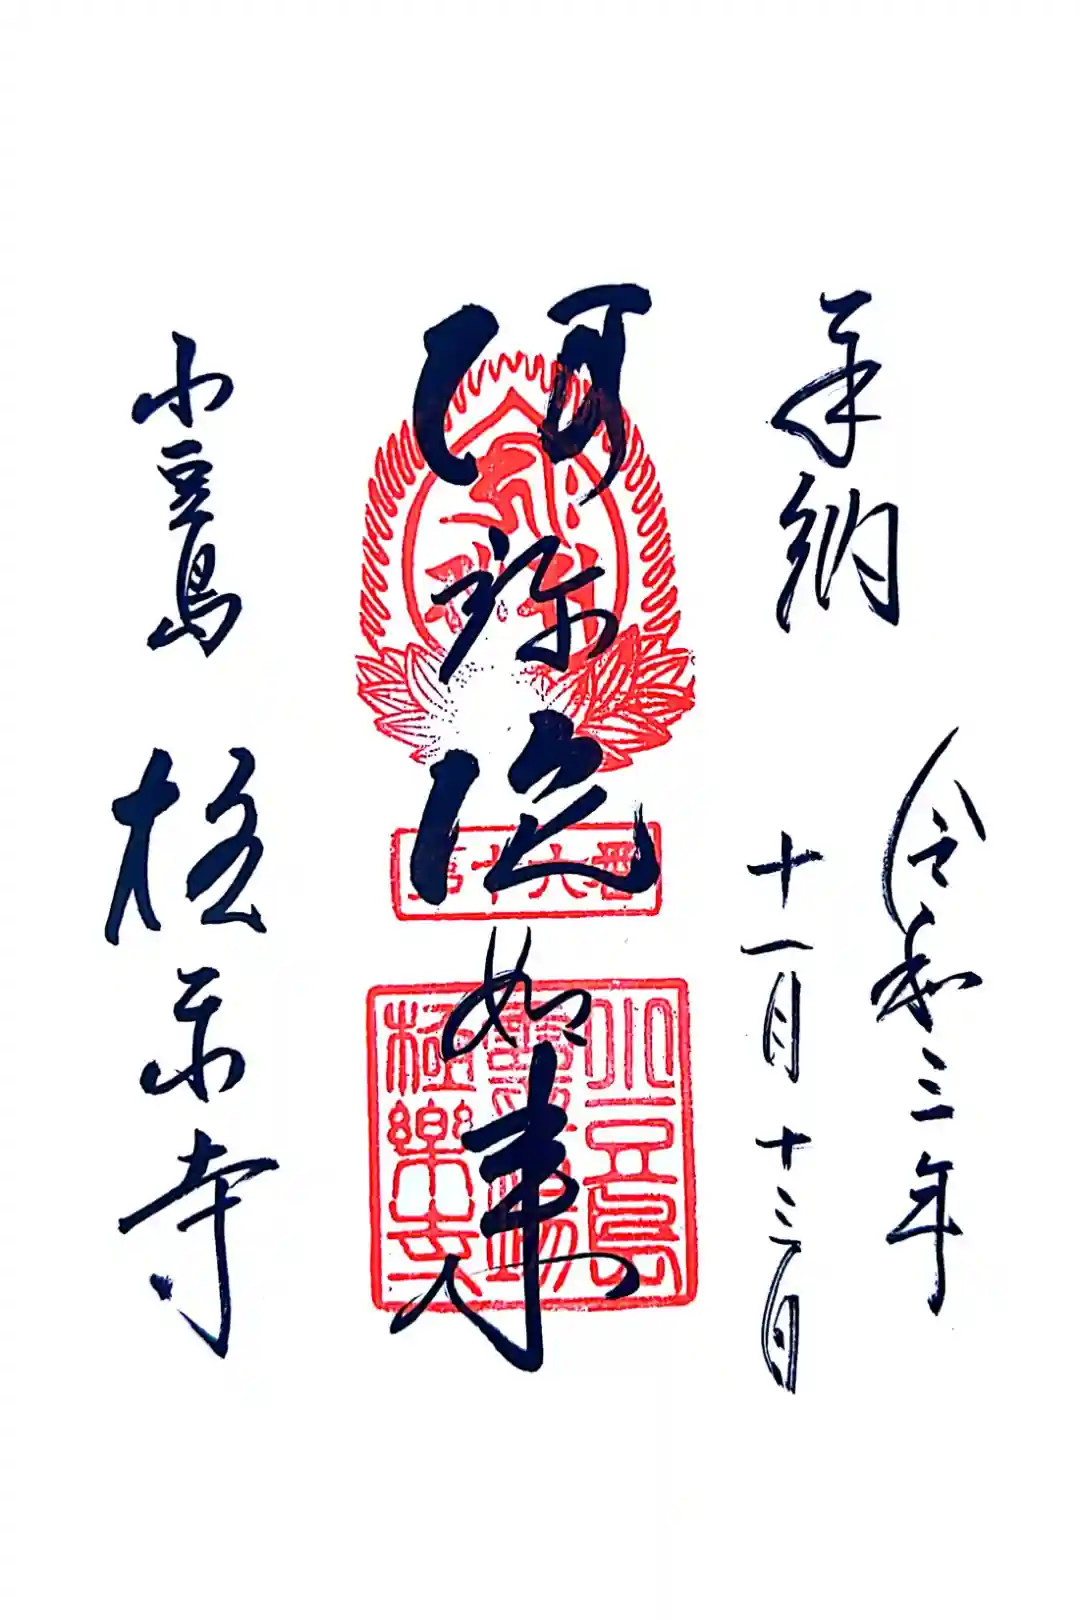 奉納
令和三年
十一月十三日
阿弥陀如来
第十六番
小豆島
靈場
極樂寺
小豆島
極楽寺